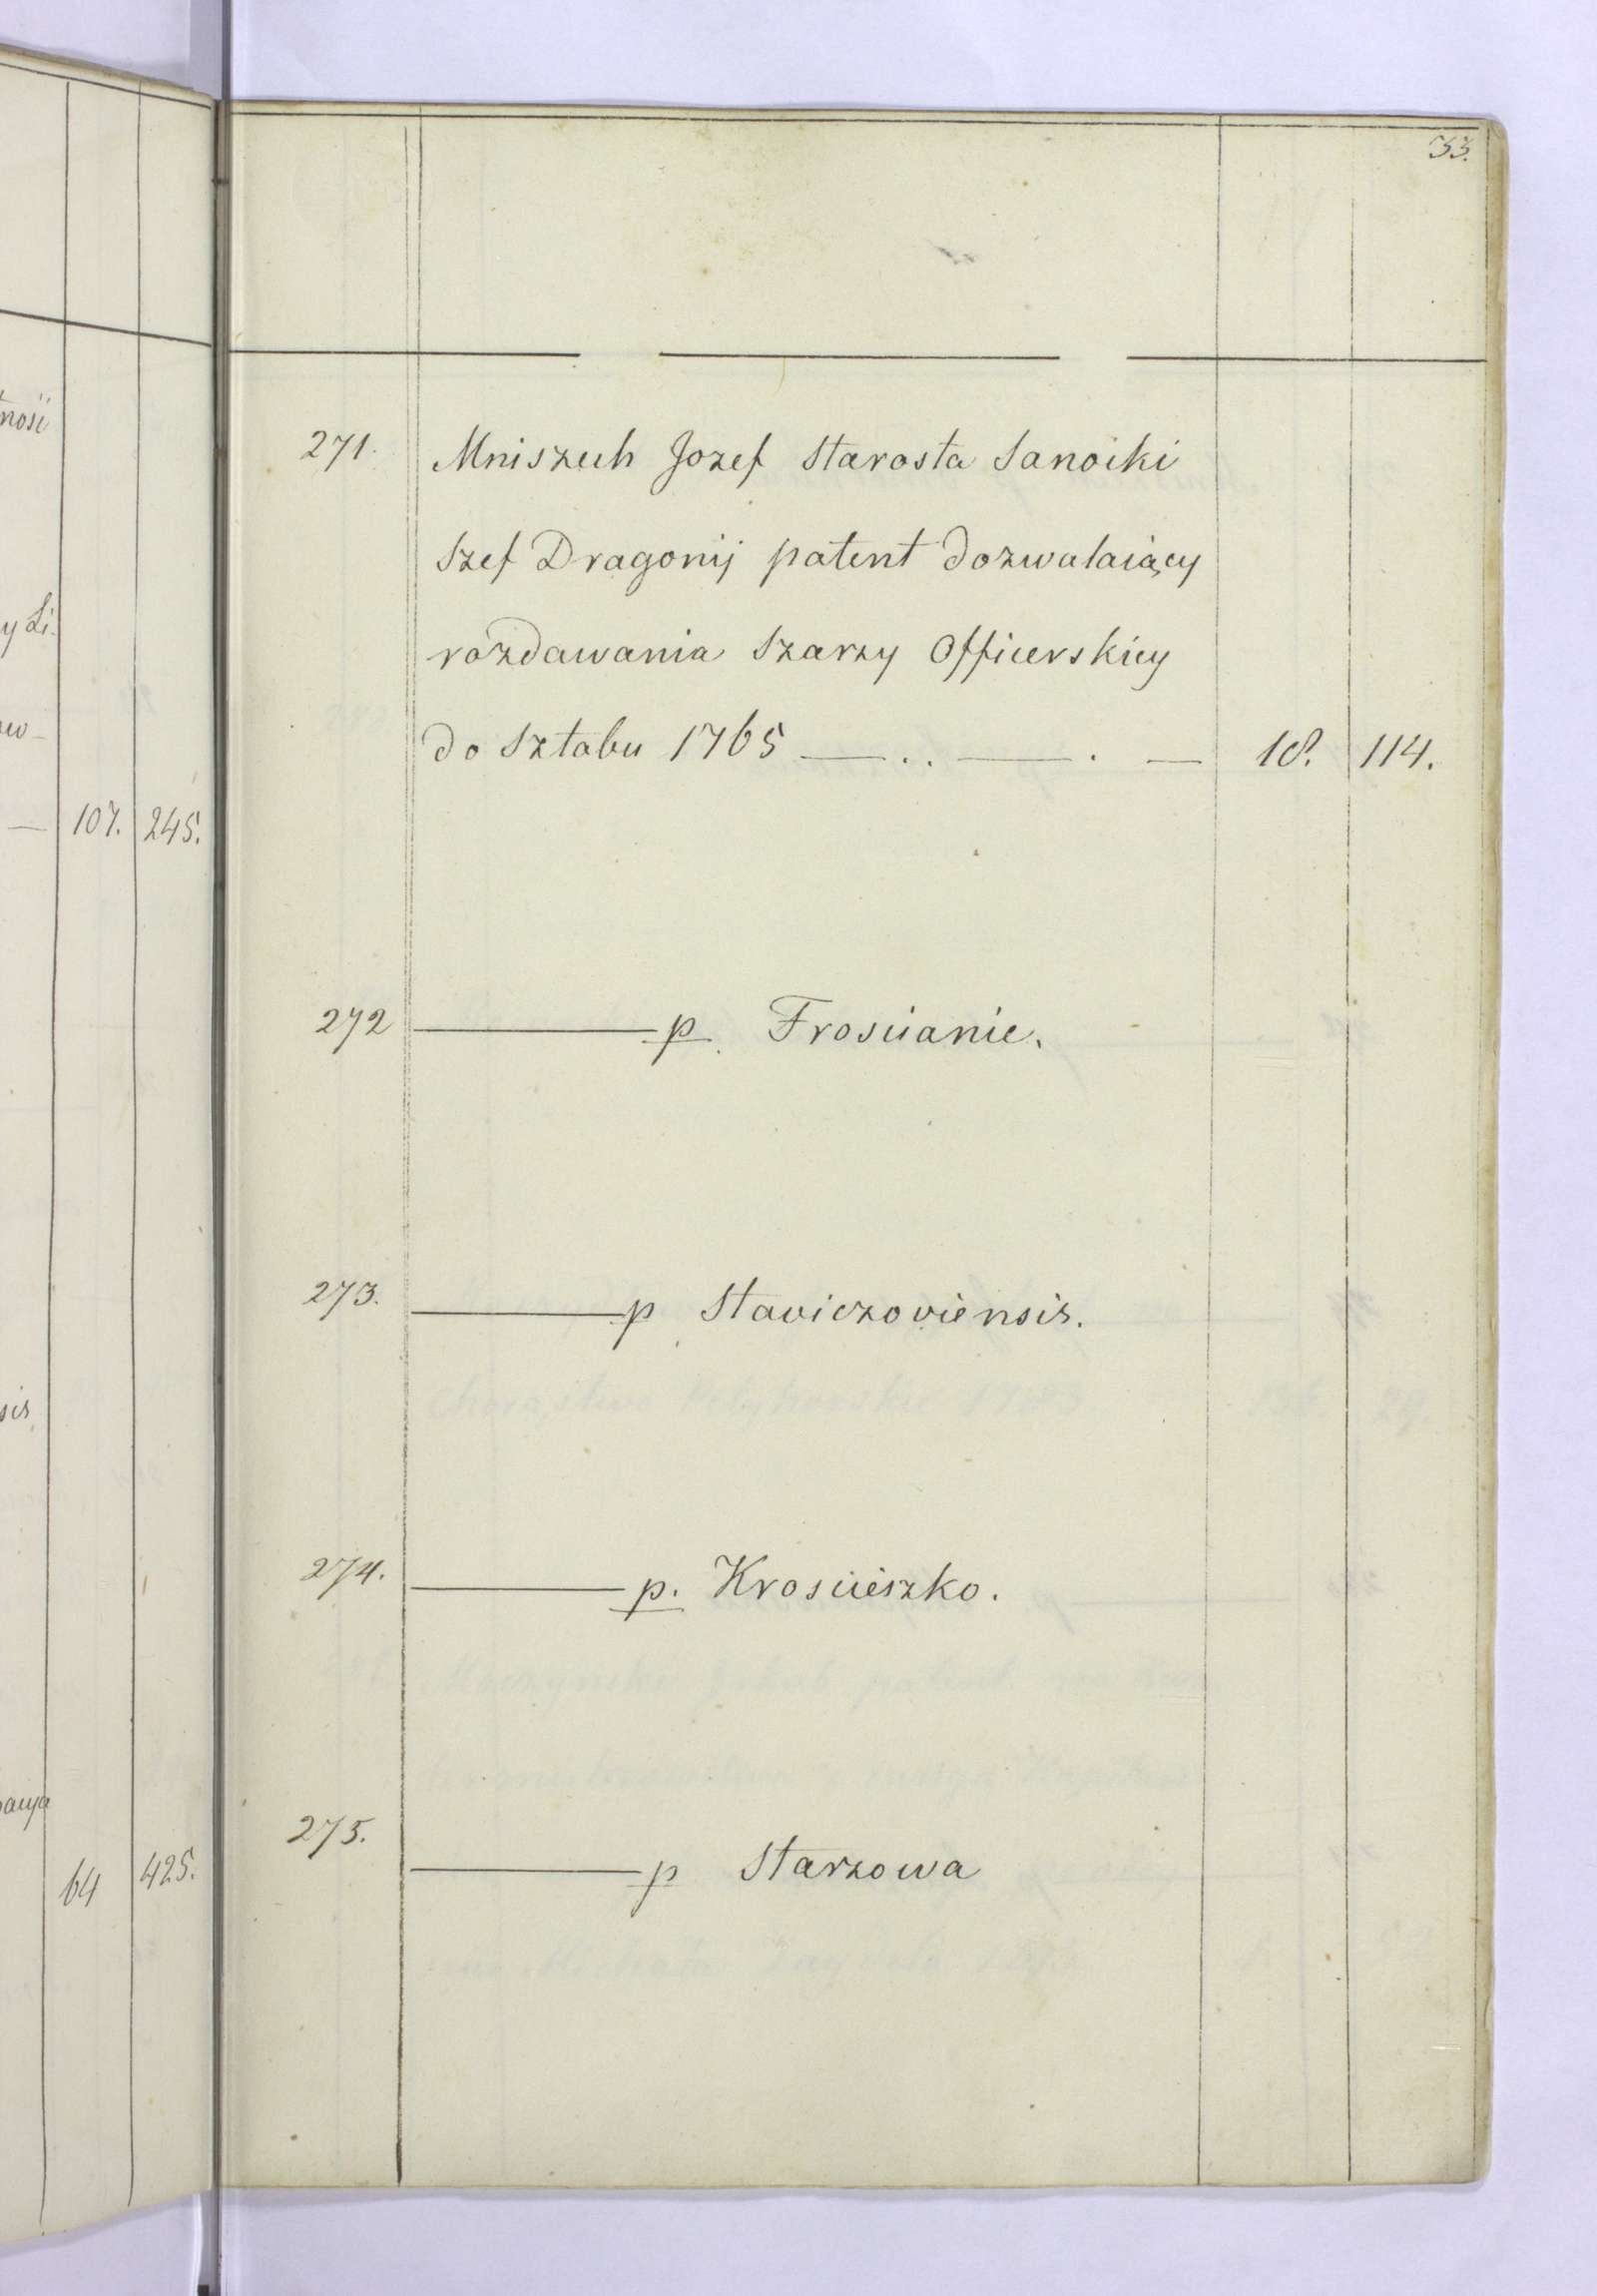 33.
nośi
y Li-
ow-
— 107. 245.
sis
64 425.
271. Mniszech Jozef Starosta Sanocki
Szef Dragonij patent dozwalaiący
rozdawania Szarzy Officerskiey
do Sztabu 1765 — . . — . — 18. 114.
272 — p. Froscianie.
273. — p Staviczoviensis.
274. — p. Kroscieszko.
275. — p Starzowa